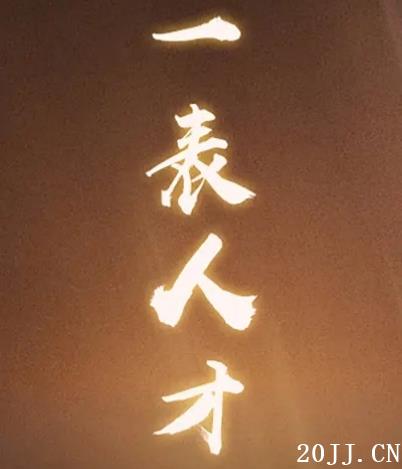 一表人才
20JJ.CN